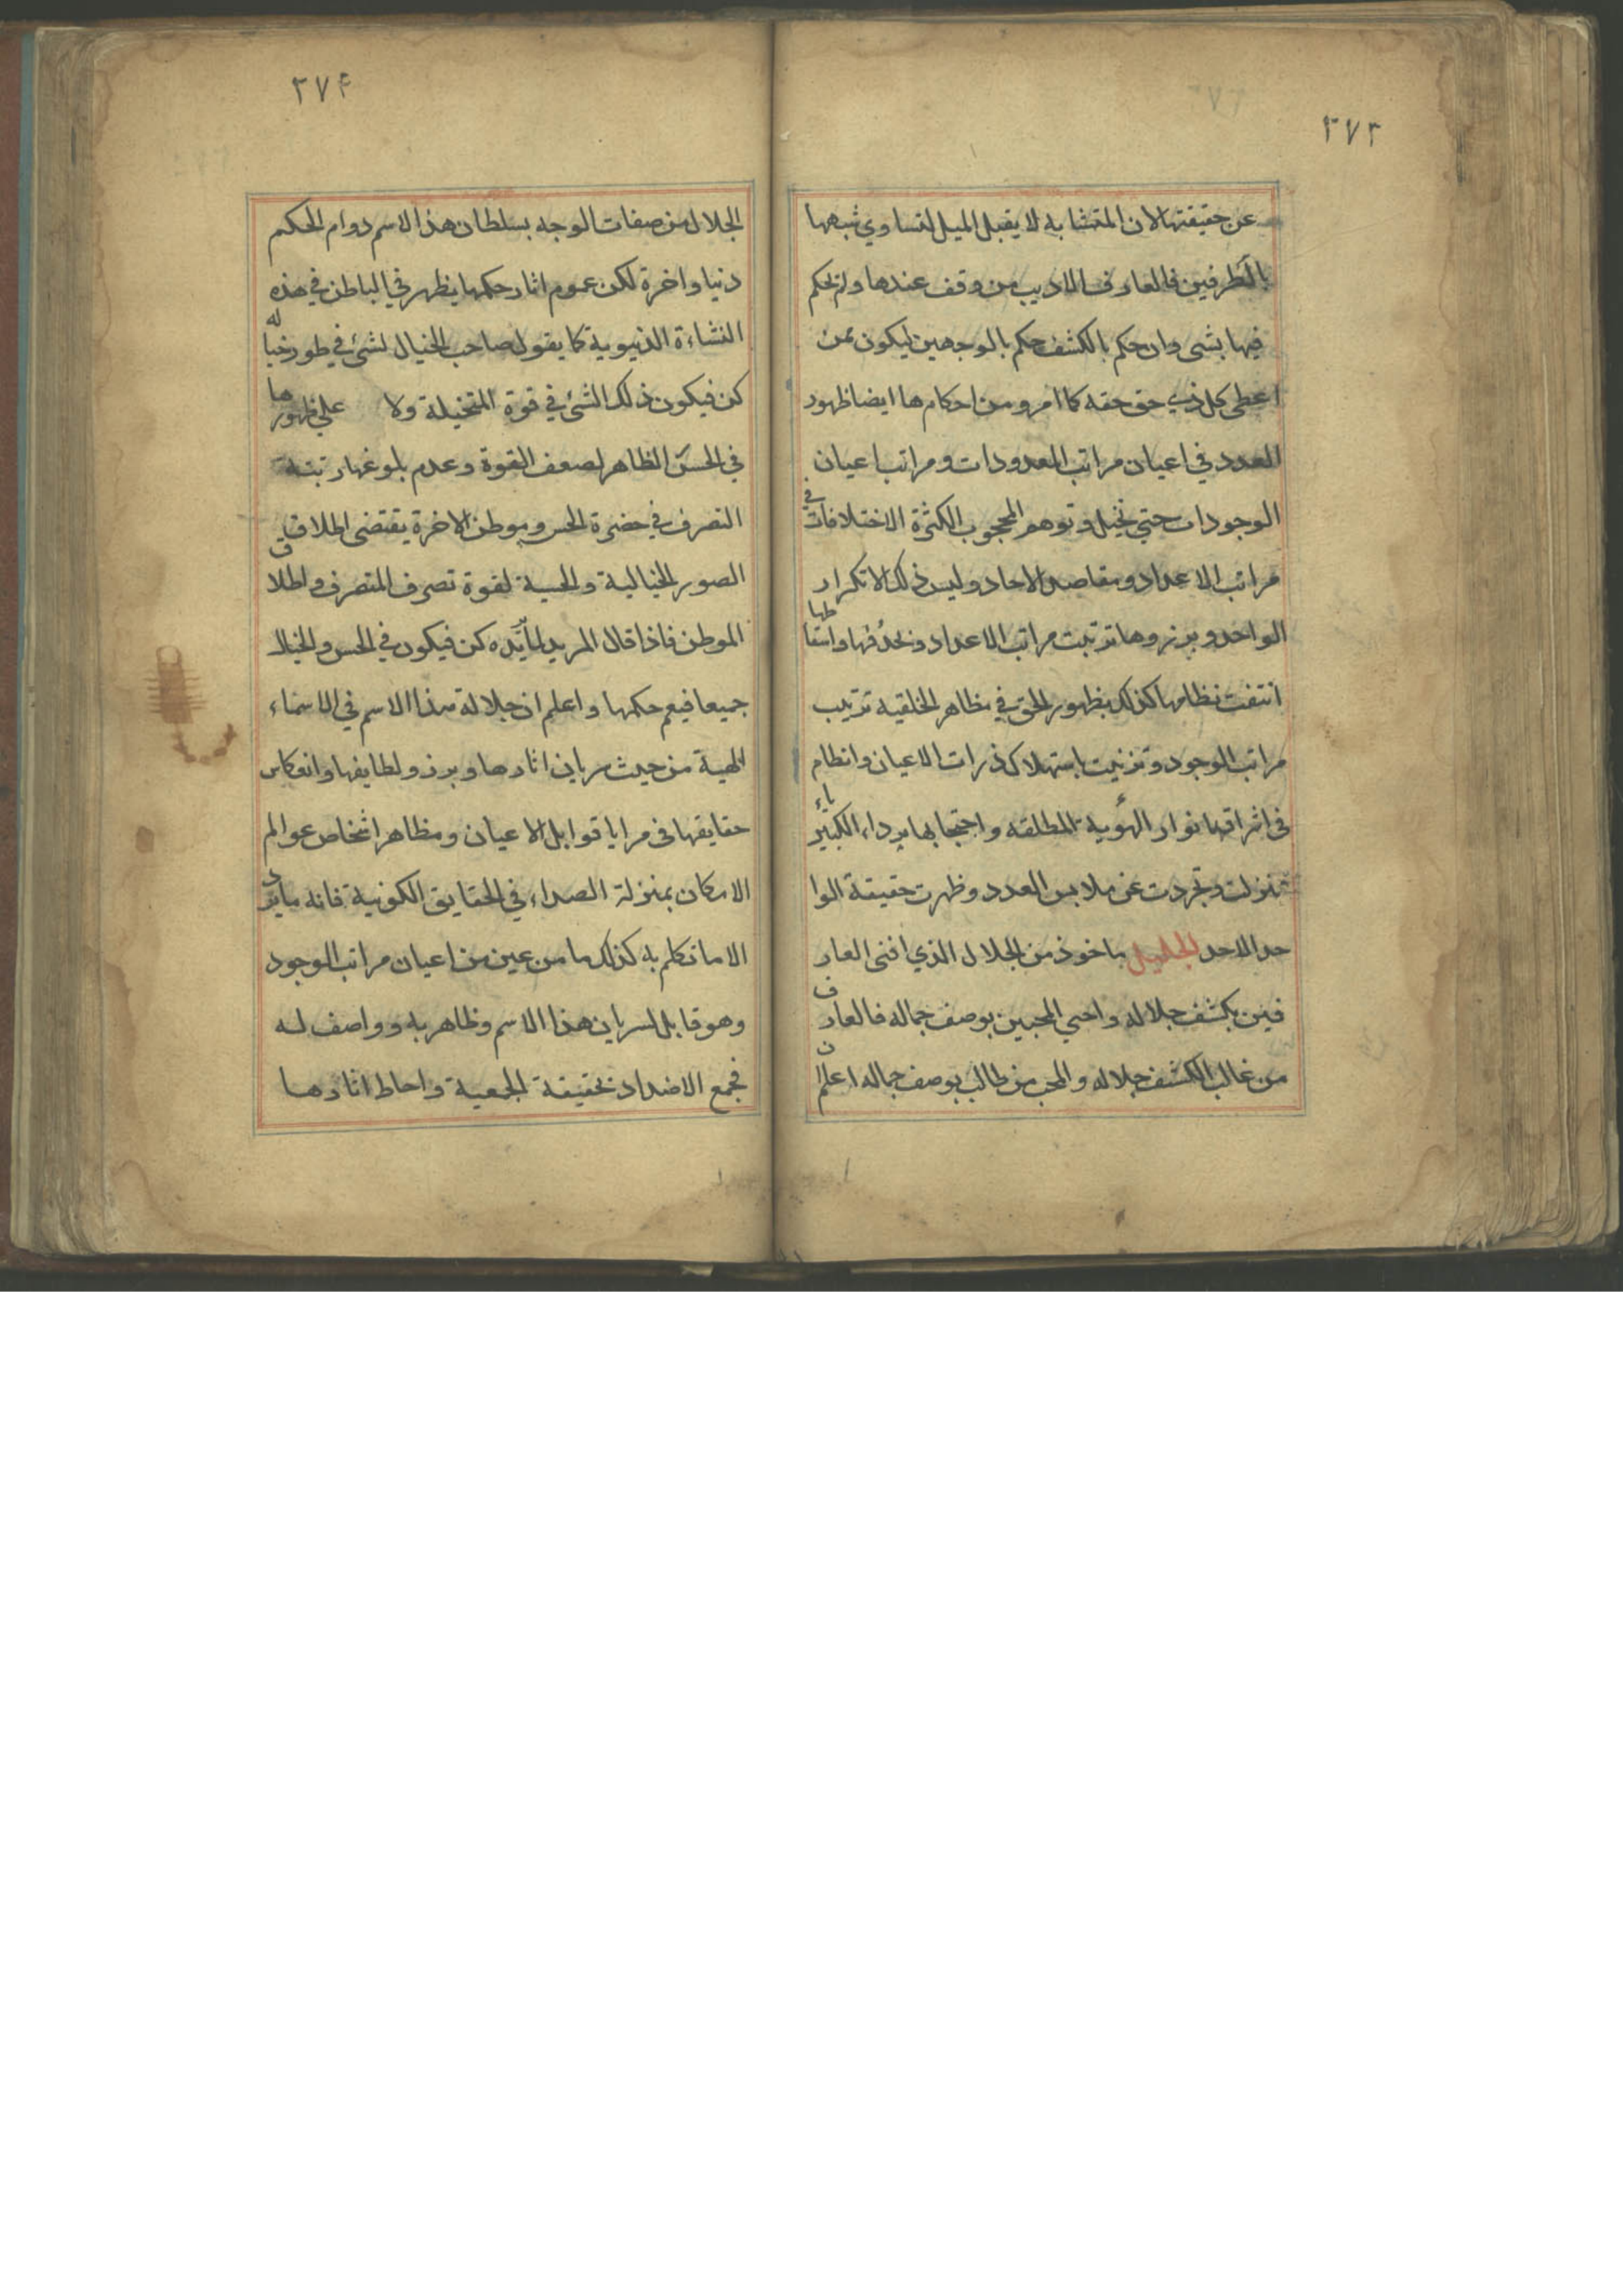 ٢٧٣
عن حقيقتها لان المتشابه لا يقبل الميل لتساوي شبهها
بالطرفين فالعارف الاديب من وقف عندها ولم يحكم
فيها بشی وان حكم بالكشف حكم بالوجهين ليكون ممن
اعطى كل ذي حق حقه كما امر ومن احكامها ايضا ظهور
العدد في اعيان مراتب المعدودات ومراتب اعيان
الوجودات حتي تخيل وتوهم المحجوب الكثرة الاختلافات في
مراتب الاعداد ومقاصد الاحاد وليس ذلك الا تكرار
الواحد وبروزها ترتبت مراتب الاعداد وبحذفها واسقاطها
انتفت نظامها كذلك بظهور الحق في مظاهر الخلقية ترتيب
مراتب الوجود وتزنيت باستهلاك ذرات الاعيان وانظام
في اشراقها نوار الهوية المطلقه واحتجابها برداء الكبرياء
تنزلت وتجردت عن ملابس العدد وظهرت حقيقة الوا
حد الاحد الجليل ماخوذ من الجلال الذي افنى العار
فين بكشف جلاله واحيي المحبين بوصف جماله فالعارف
من غالب الكشف جلاله والمحب من طالب بوصف جماله اعلم ان
٢٧۴
الجلال من صفات الوجه بسلطان هذا الاسم دوام الحكم
دنيا واخرة لكن عموم اثار حكمها يظهر في الباطن في هذه
النشاءة الدنيوية كما يقول صاحب الخيال لشئ في طور خياله
كن فيكون ذلك الشئ في قوة المتخيلة ولا علي ظهورها
في الحس الظاهر لصعف القوة وعدم بلوغها رتبة
التصرف في حضرة الحس وموطن الاخرة يقتضى اطلاق
الصور الخيالية والحسية لقوة تصرف المتصرف واطلاق
الموطن فاذا قال المريد لما يريده كن فيكون في الحس والخيال
جميعا فيعم حكمها واعلم ان جلالة هذا الاسم في الاسماء
الهية من حيث سريان اثارها وبروز ولطايفها وانعكاس
حقايقها في مرايا قوابل الاعيان ومظاهر اشخاص عوالم
الامكان بمنزلة الصداء في الحقايق الكونية فانه ما يرد
الا ما تكلم به كذلك ما من عين من اعيان مراتب الوجود
وهو قابل لسريان هذا الاسم وظاهر به وواصف له
فجمع الاضداد بحقيقة الجمعية واحاط اثارها